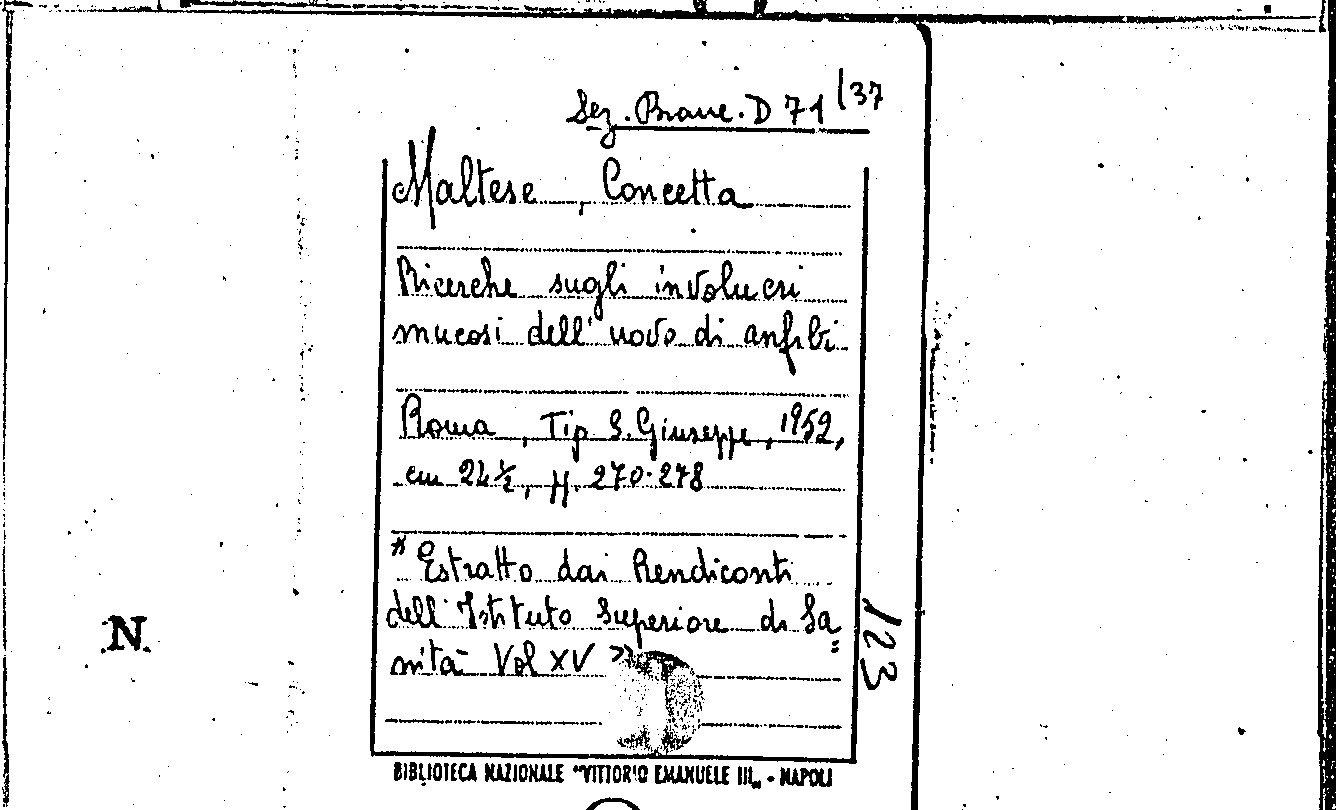 Sez. Brane. D 71/37
Maltese, Concetta
Ricerche sugli involucri
mucosi dell'uovo di anfibi
Roma, Tip S. Giuseppe, 1952,
cm 24½, pp. 270-278
"Estratto dai Rendiconti
dell'Istituto Superiore di Sa=
nità Vol XV"
123
N.
BIBLIOTECA NAZIONALE "VITTORIO EMANUELE III„ - NAPOLI